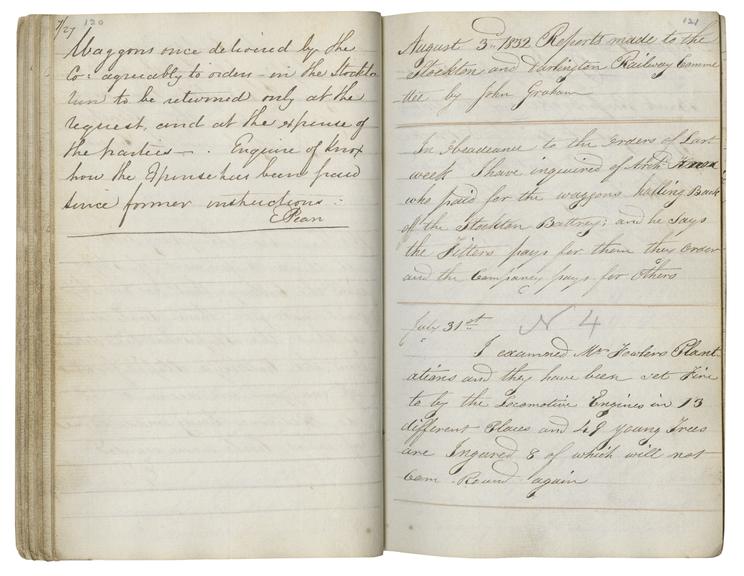 7/27 120
Waggons once delivered by the
Co: agreeably to orders - in the Stockton
turn to be returned only at the
request, and at the expense of
the parties - . Enquire of Knox
how the Expense has been paid
since former instructions :
E Pean
121
August 3rd 1832 Reports made to the
Stockton and Darlington Railway Comme
ttee by John Graham
In Obeadeance to the Orders of Last
week I have inquired of Archd Knox
who paid for the waggons halling Back
of the Stockton Battrey; and he Says
the Fitters pays for them they Order
and the Company pays for Others
July 31st N 4
I examened Mr Fowlers Plant
ations and they have been set Fire
to by the Locomotive Engines in 13
different Places and 49 young Trees
are Ingured 8 of which will not
Com Round again